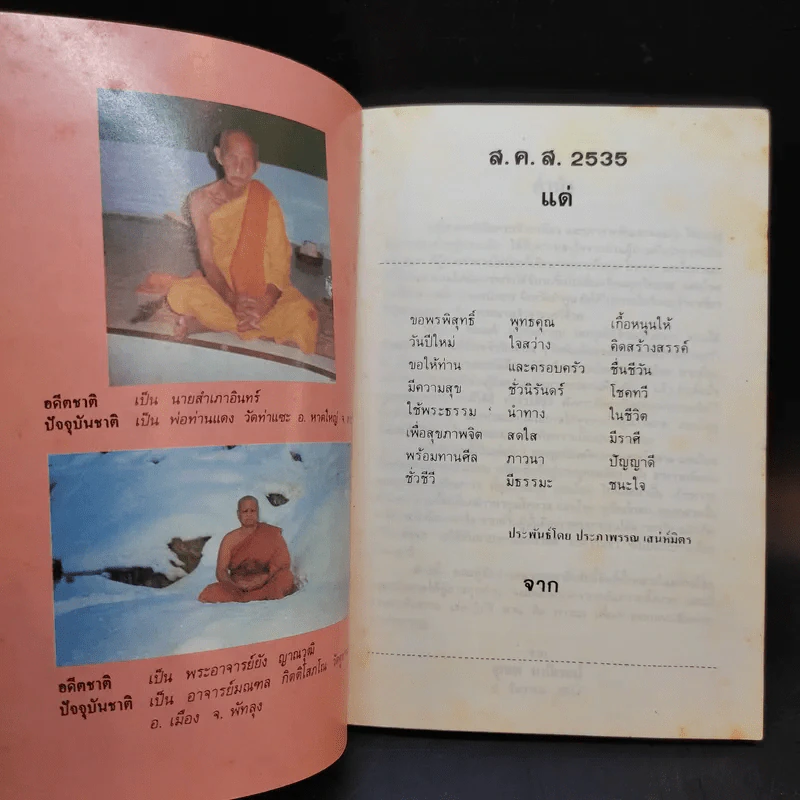 อดีตชาติ เป็น นายสำเภาอินทร์
ปัจจุบันชาติ เป็น พ่อท่านแดง วัดท่าแซะ อ. หาดใหญ่ จ.
อดีตชาติ เป็น พระอาจารย์ยัง ญาณวุฒิ
ปัจจุบันชาติ เป็น อาจารย์มณฑล กิตติโสภโณ
อ. เมือง จ. พัทลุง
ส.ค.ส. 2535
แด่
ขอพรพิสุทธิ์ พุทธคุณ เกื้อหนุนให้
วันปีใหม่ ใจสว่าง คิดสร้างสรรค์
ขอให้ท่าน และครอบครัว ชื่นชีวัน
มีความสุข ชั่วนิรันดร์ โชคทวี
ใช้พระธรรม นำทาง ในชีวิต
เพื่อสุขภาพจิต สดใส มีราศี
พร้อมทานศีล ภาวนา ปัญญาดี
ชั่วชีวี มีธรรมะ ชนะใจ
ประพันธ์โดย ประภาพรรณ เสน่ห์มิตร
จาก